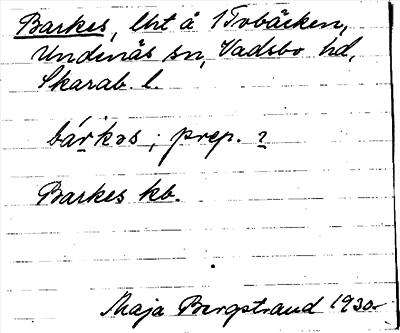 Barkes, lht å 1 Tvbäcken,
Undenäs sn, Vadsbo hd,
Skarab. l.
bárkəs; prep. ?
Barkes kb.
Maja Bergstrand 1930